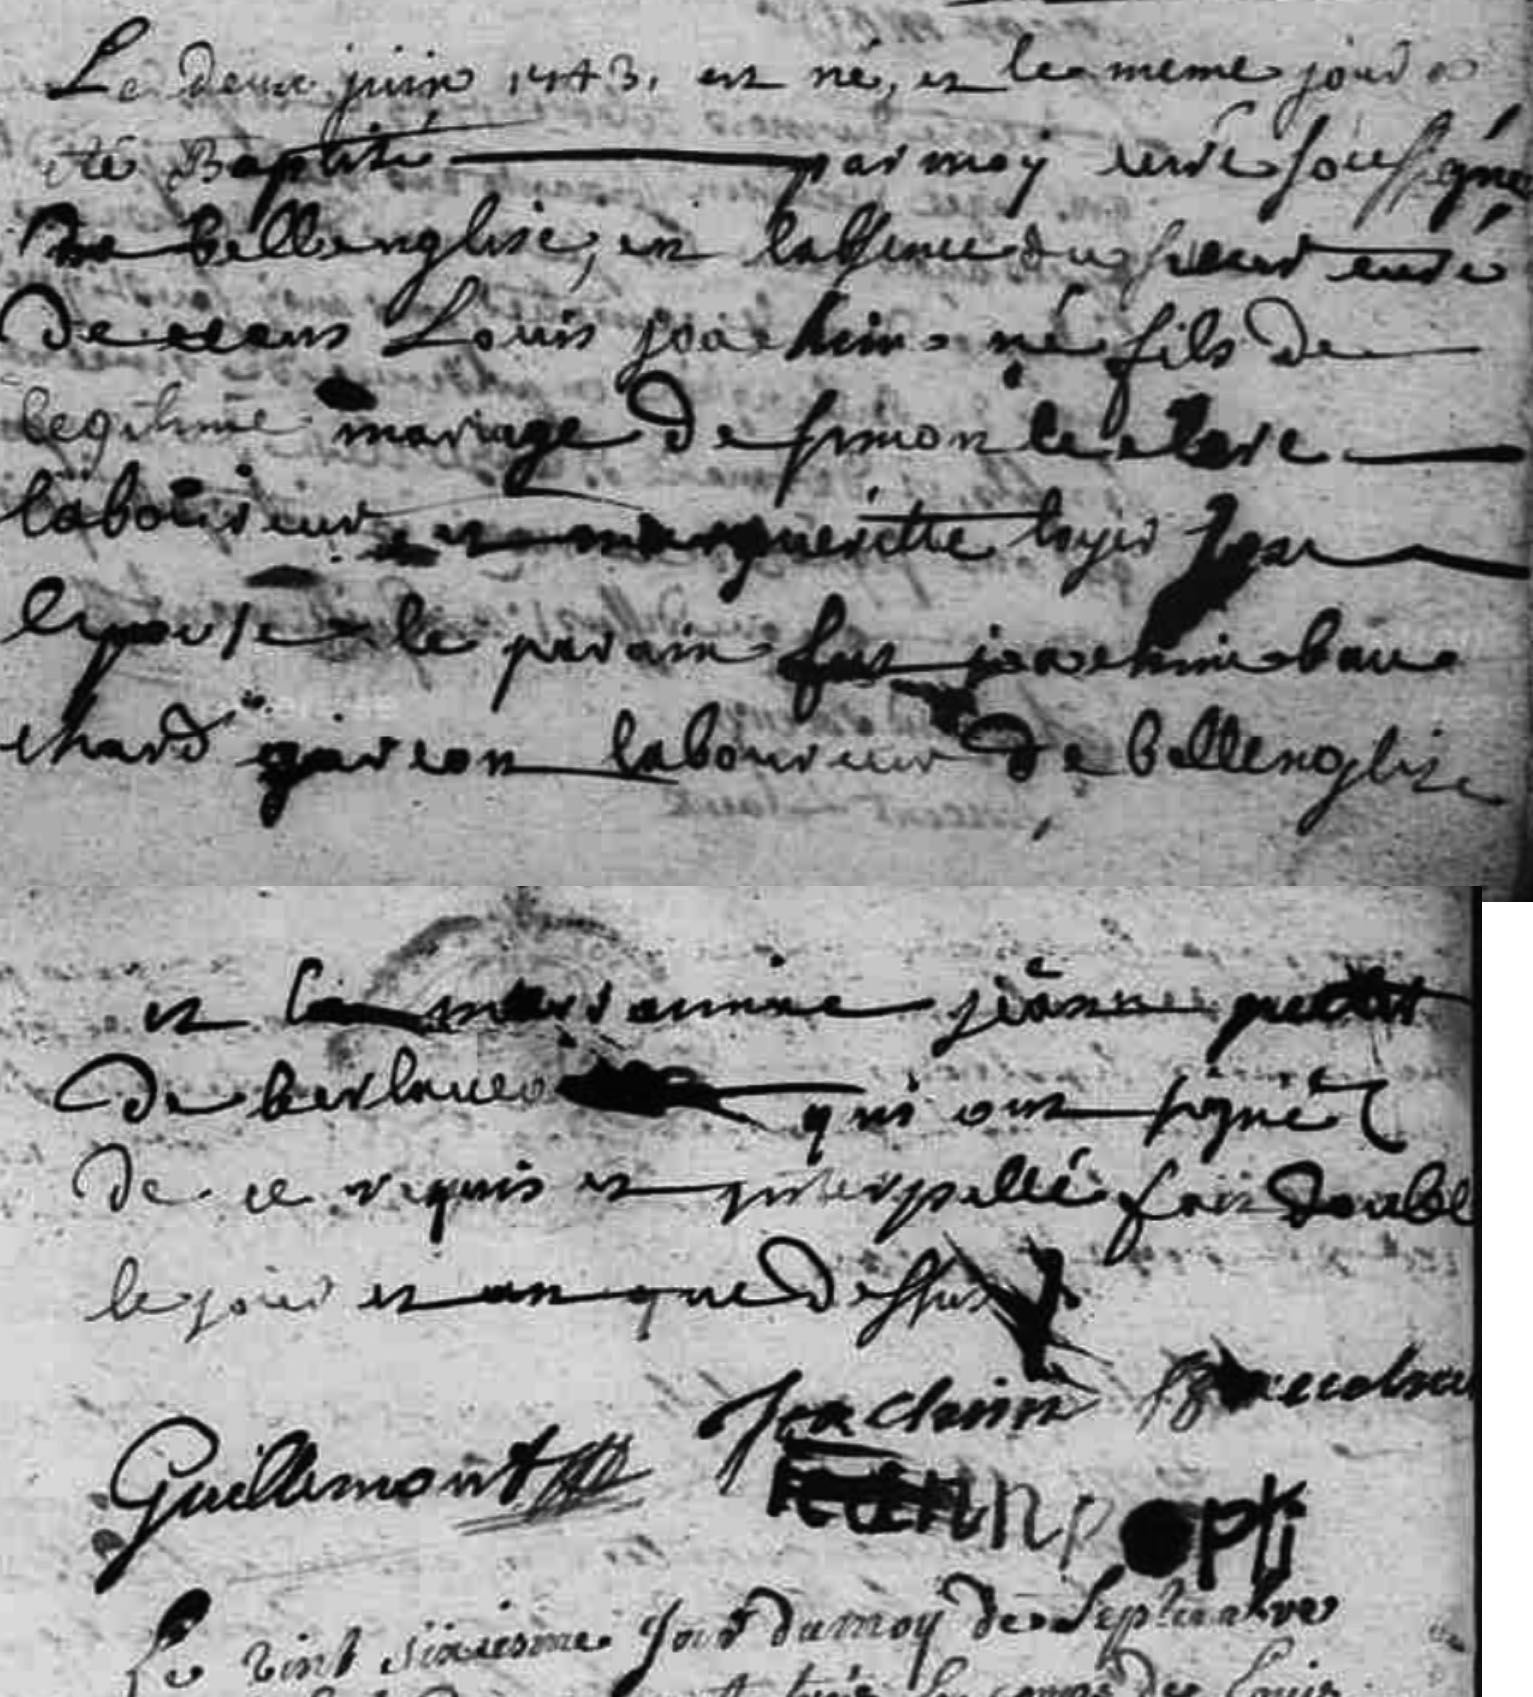 Le deux juin 1743. est né, et le meme jour a
été Baptisé par moy curé soussigné
de bellenglise, en labsence du sieur curé
de Louis joachim né fils de
legitime mariage de simon le clerc
laboureur et margueritte son
epouse le parain fut joachim bau
chard garcon laboureur de bellenglise
et la marainne jeanne
de qui ont signé
de ce requis et interpellé fait double
le jour et an que dessus
Joachim Bauchar
Guillemont
Le vint sixiesme Jour du moy de Septembre
le corps de Louis